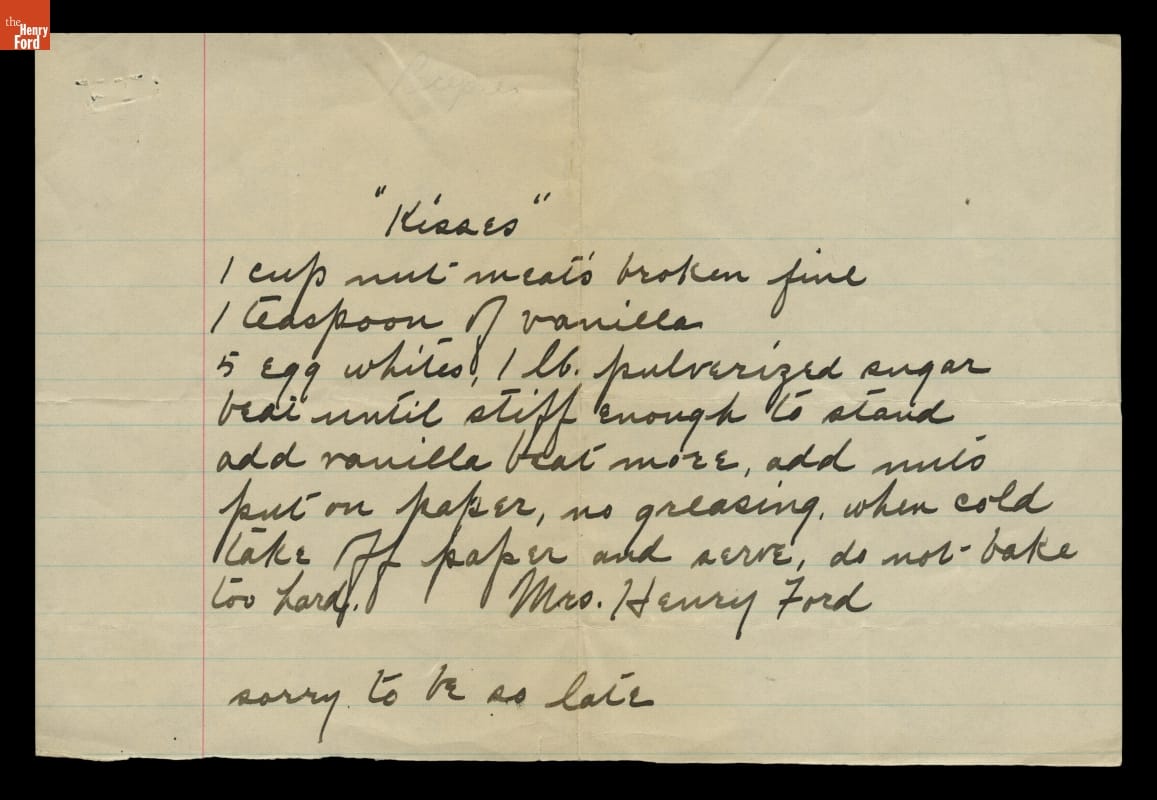 the
Henry
Ford
Recipes
"Kisses"
1 cup nut meats broken fine
1 teaspoon of vanilla
5 egg whites, 1 lb. pulverized sugar
beat until stiff enough to stand
add vanilla beat more, add nuts
put on paper, no greasing, when cold
take off paper and serve, do not bake
too hard. Mrs. Henry Ford
sorry to be so late